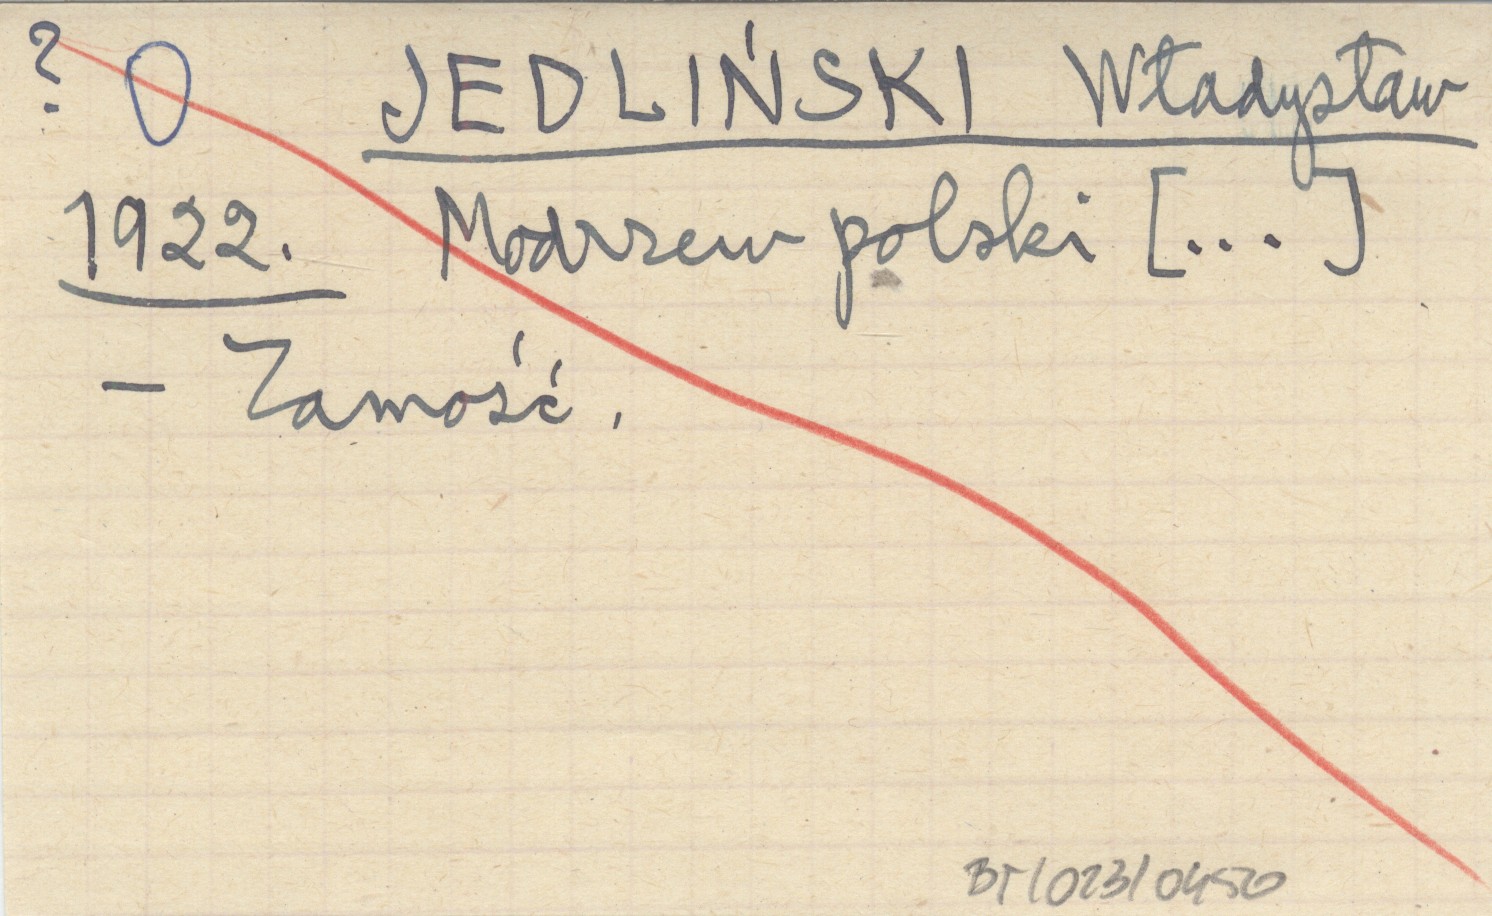 ? 0 JEDLIŃSKI Władysław
1922. Modrzew polski [...]
- Zamość.
BT/023/0450